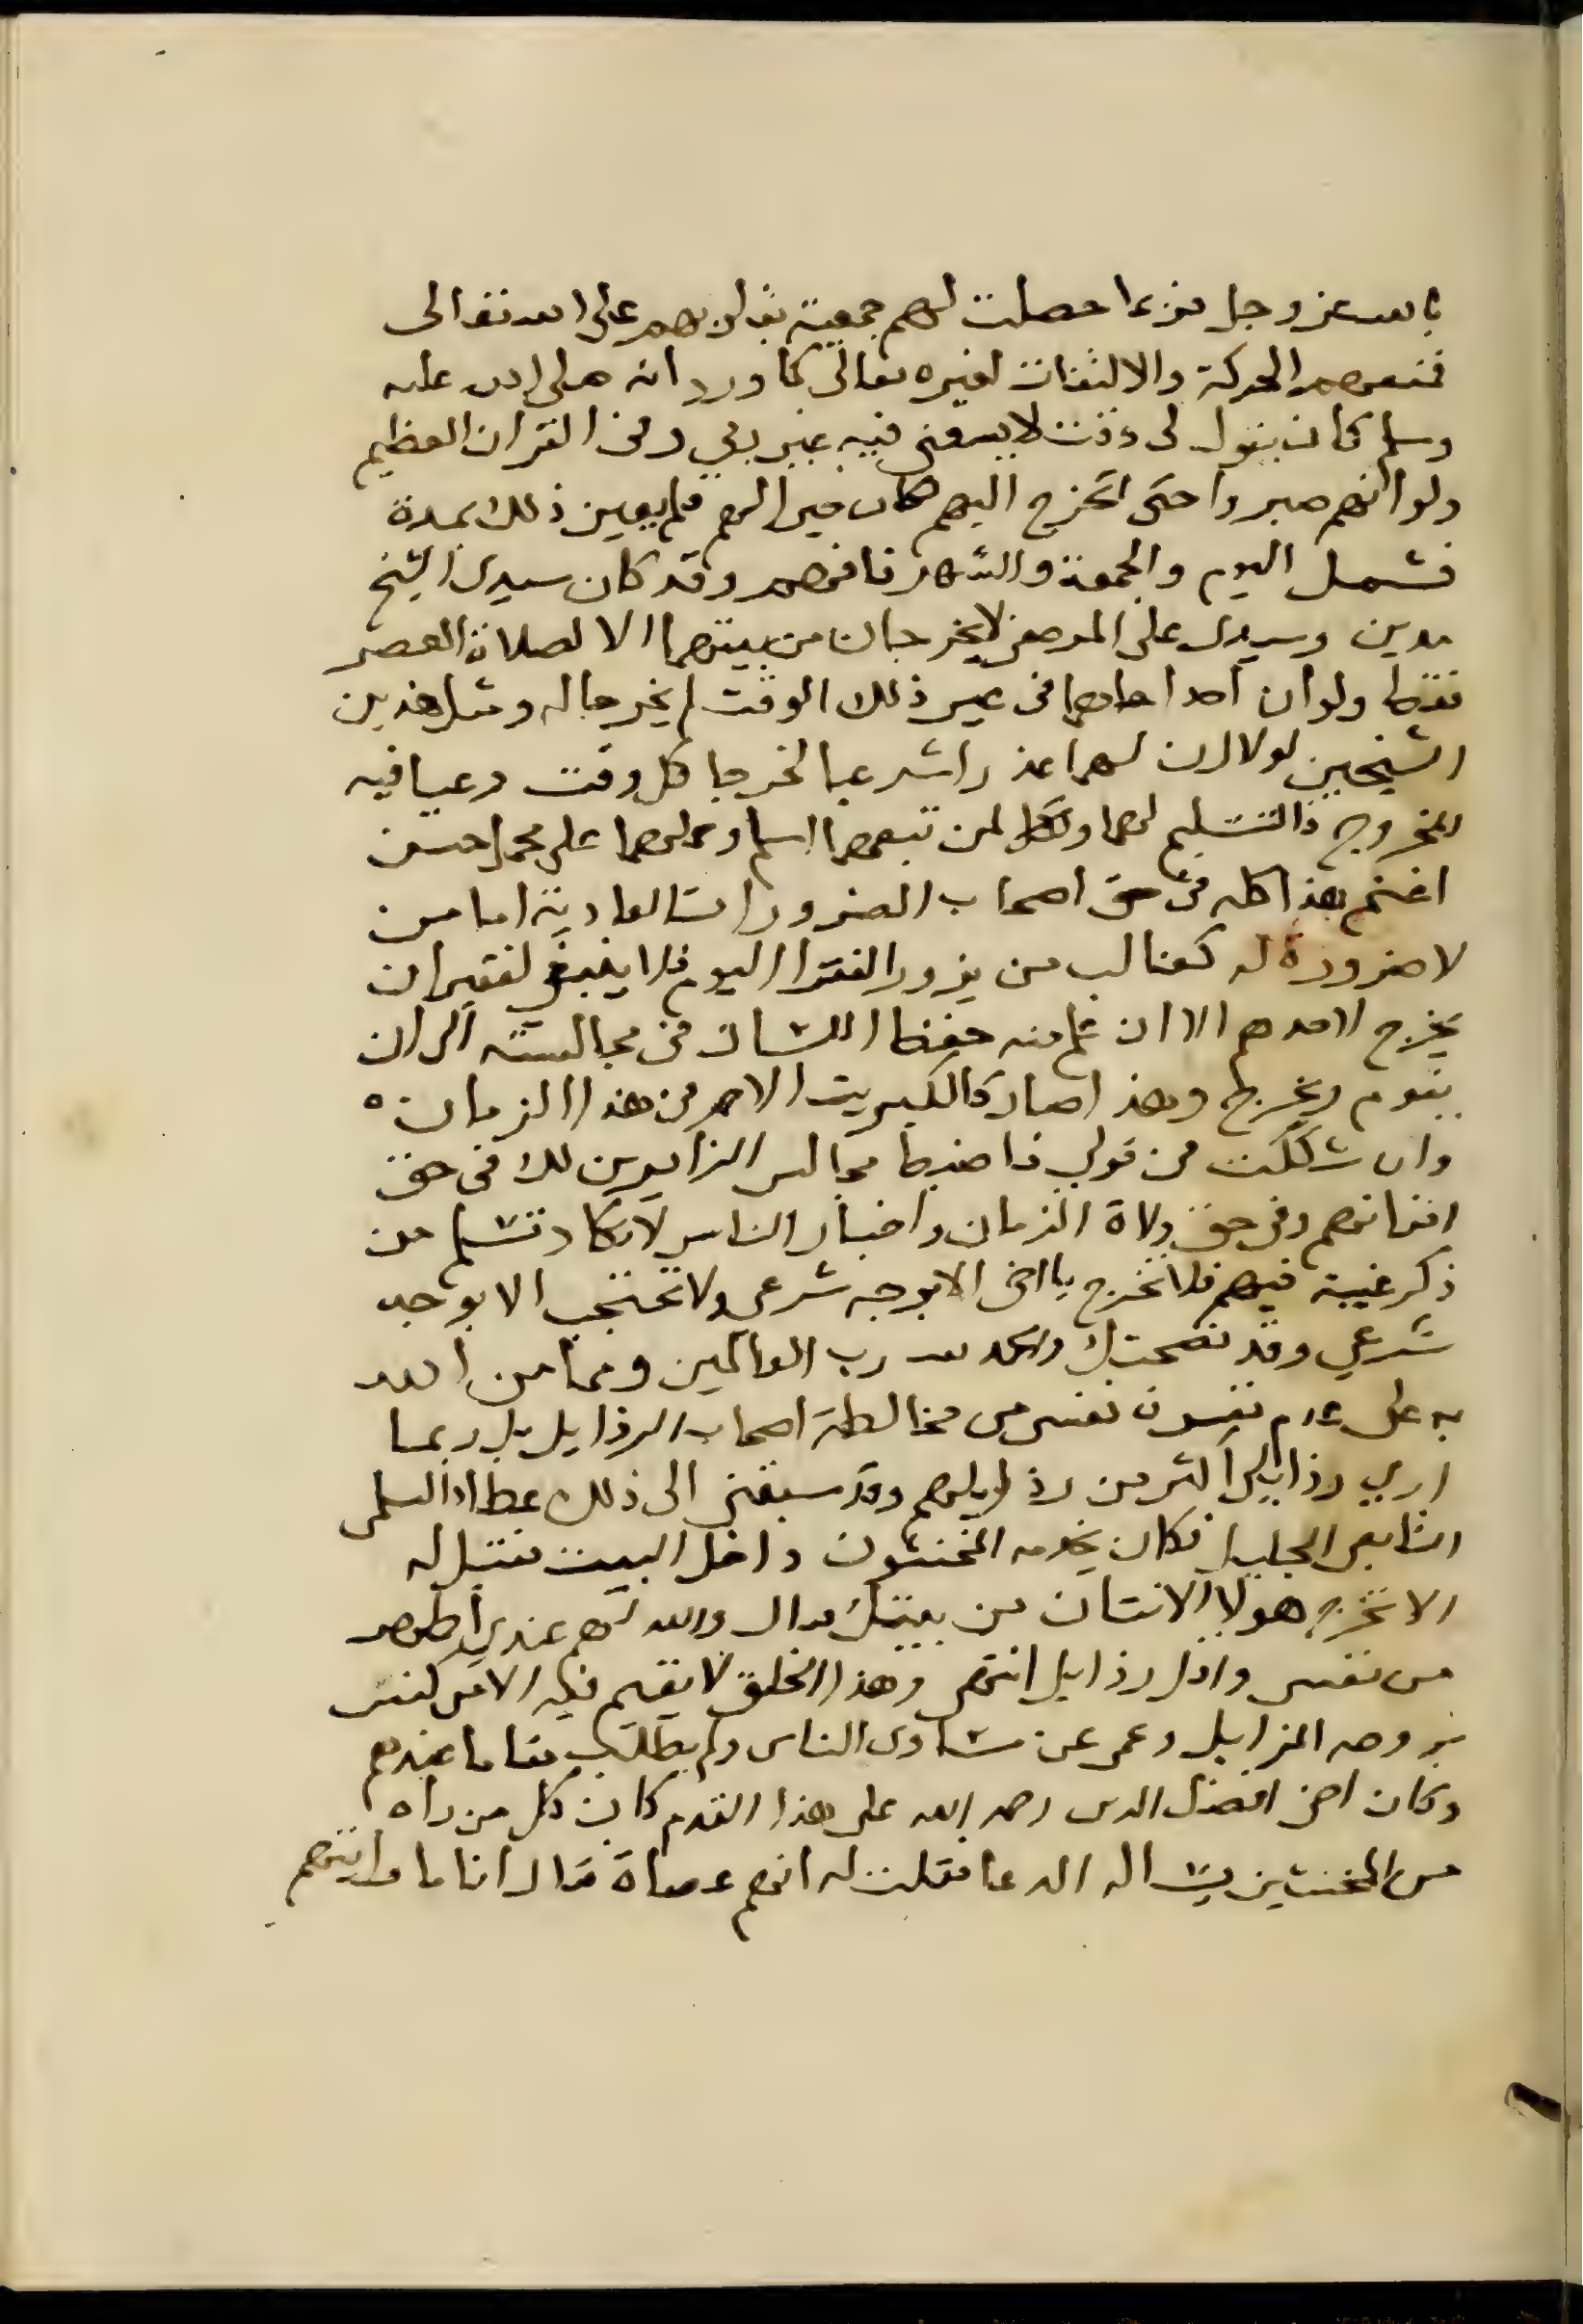 بالله عز وجل فربما حصلت لهم جمعية بقلوبهم على الله تعالى
فتمنعهم الحركة والالتفات لغيره تعالى كما ورد انه صلى الله عليه
وسلم كان يقول لى وقت لا يسعنى فيه غير ربي وفى القران العظيم
ولو انهم صبروا حتى تخرج اليهم لكان خيرا لهم فلم يعين ذلك بمدة
فشمل اليوم والجمعة والشهر فافهم وقد كان سيدى الشيخ
مدين وسيدى على المرصفى لا يخرجان من بيتهما الا لصلاة العصر
فقط ولو ان احدا جاهما فى غير ذلك الوقت لم يخرجا له ومثل هذين
الشيخين لولا ان لهما عذرا شرعيا لخرجا كل وقت دعيا فيه
للخروج فالتسليم لهما ولكل من تبعهما اسلم وحملهما على محمل حسن
اغنم هذا كله فى حق اصحاب الضرورات العادية اما من
لا ضرورة له كغالب من يزور الفقرا اليوم فلا ينبغي لفقير ان
يخرج لاحدهم الا ان علم منه حفظ اللسان فى مجالسته الى ان
يقوم ويخرج وهذا صار كالكبريت الاحمر فى هذا الزمان
وان شككت فى قولي فاضبط مجالس الزايرين لك فى حق
اقرانهم وفى حق ولاة الزمان واخبار الناس لا تكاد تسلم من
ذكر غيبة فيهم فلا تخرج يا اخى الا بوجه شرعى ولا تحتجب الا بوجه
شرعي وقد نصحتك والحمد لله رب العالمين ومما من الله
به على عدم نفرة نفسى من مخالطة اصحاب الرذايل بل ربما
اري رذايلى اكثر من رذايلهم وقد سبقنى الى ذلك عطاء السلمى
التابعى الجليل فكان يخدمه المخنثون داخل البيت فقيل له
الا تخرج هولا الانتان من بيتك فقال والله لهم عندي اطهر
من نفسى واقل رذايل انتهى وهذا الخلق لا يقيم فيه الا من كنس
بروحه المزابل وعمى عن مساوى الناس ولم يطلب مقاما عندهم
وكان اخى افضل الدين رحمه الله على هذا القدم كان كل من راه
من المخنثين يساله الدعا فقلت له انهم عصاة فقال انا ما رايتهم